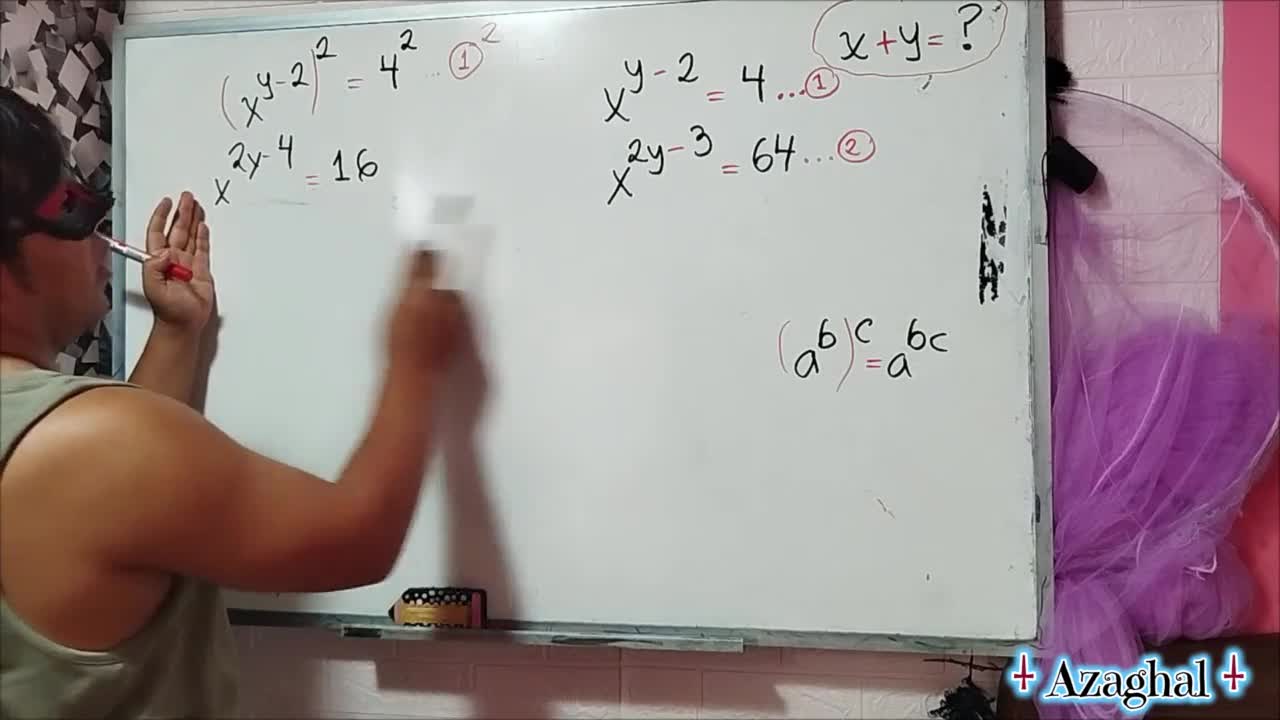 (x^{y-2})^2 = 4^2 ... ①^2
x^{2y-4} = 16
x + y = ?
x^{y-2} = 4 ... ①
x^{2y-3} = 64 ... ②
(a^b)^c = a^{bc}
Azaghal